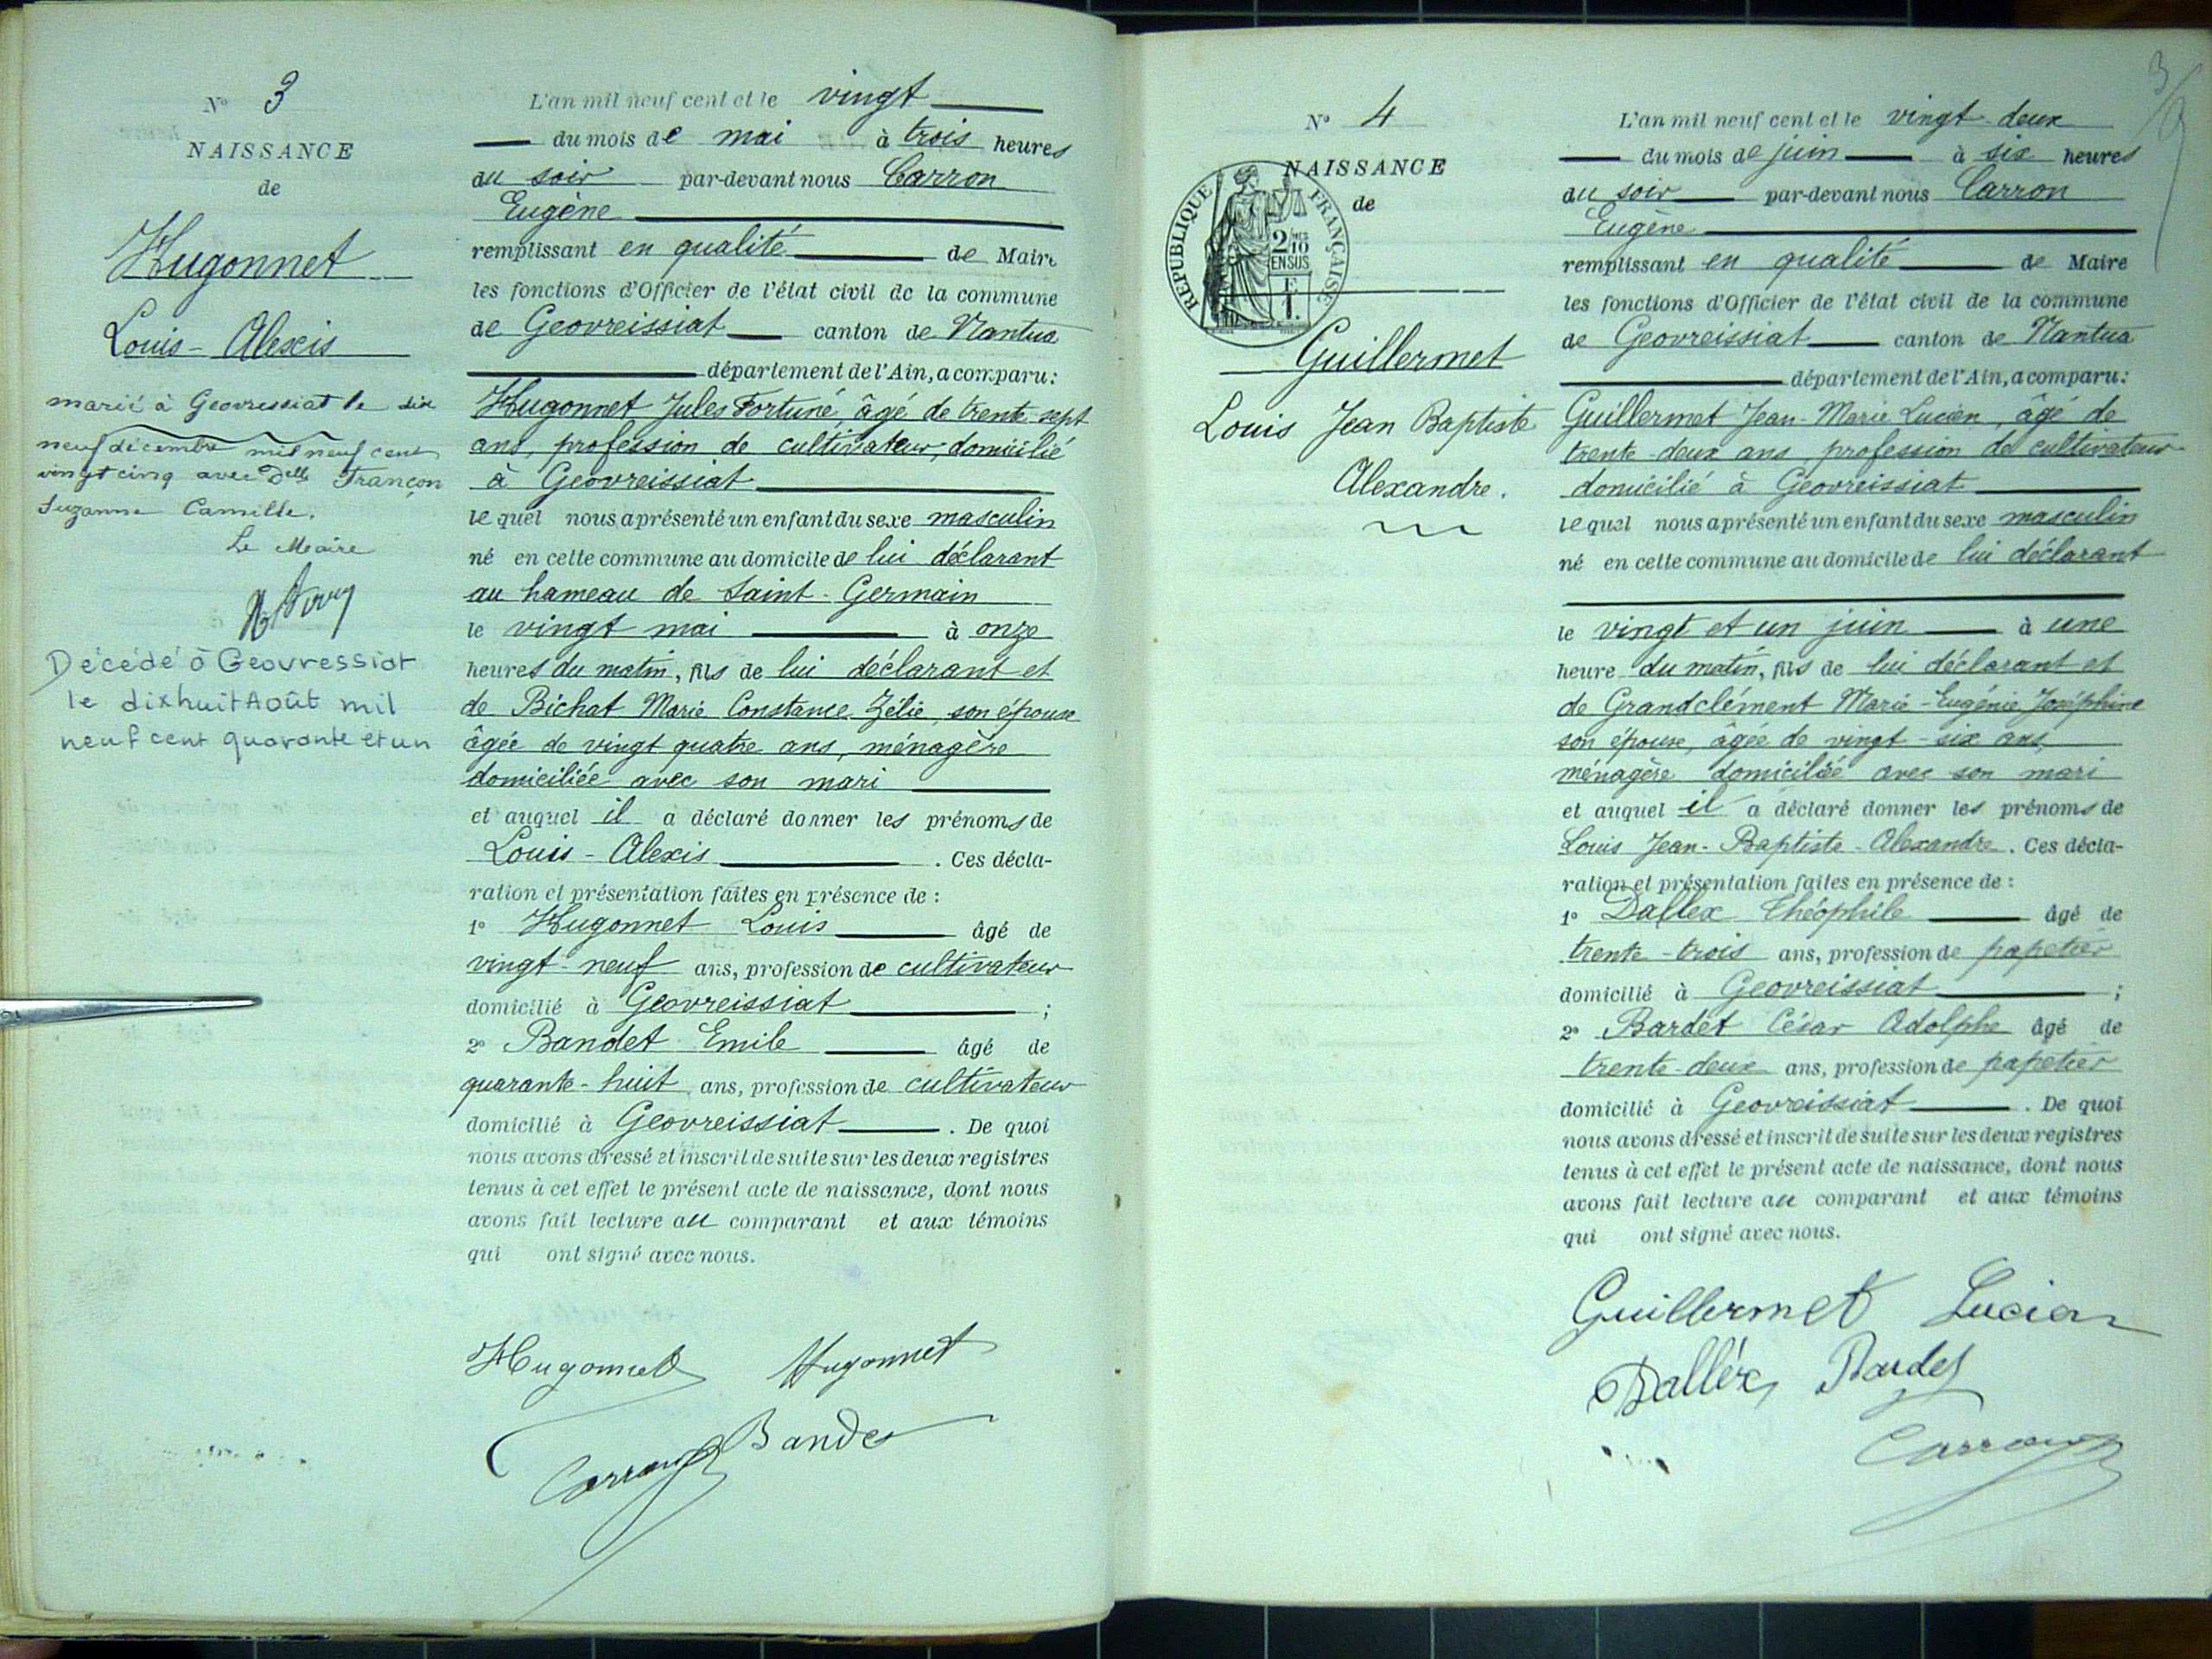 N° 3
NAISSANCE
de
Hugonnet
Louis-Alexis
marié à Geovressiat le dix
neuf décembre mil neuf cent
vingt cinq avec Delle Françon
Suzanne Camille.
Le Maire
Décédé à Geovressiat
le dix huit Août mil
neuf cent quarante et un
L'an mil neuf cent et le vingt
du mois de mai à trois heures
du soir par-devant nous Carron
Eugène
remplissant en qualité de Maire
les fonctions d'Officier de l'état civil de la commune
de Geovreissiat canton de Nantua
département de l'Ain, a comparu:
Hugonnet Jules Fortuné, âgé de trente-sept
ans, profession de cultivateur, domicilié
à Geovreissiat
lequel nous a présenté un enfant du sexe masculin
né en cette commune au domicile de lui déclarant
au hameau de Saint-Germain
le vingt mai à onze
heures du matin, fils de lui déclarant et
de Bichat Marie Constance Zélie, son épouse
âgée de vingt quatre ans, ménagère
domiciliée avec son mari
et auquel il a déclaré donner les prénoms de
Louis-Alexis. Ces décla-
ration et présentation faites en présence de :
1° Hugonnet Louis âgé de
vingt-neuf ans, profession de cultivateur
domicilié à Geovreissiat ;
2° Bandet Emile âgé de
quarante-huit ans, profession de cultivateur
domicilié à Geovreissiat. De quoi
nous avons dressé et inscrit de suite sur les deux registres
tenus à cet effet le présent acte de naissance, dont nous
avons fait lecture au comparant et aux témoins
qui ont signé avec nous.
Hugonnet Hugonnet
Carron Bandet
3
N° 4
NAISSANCE
de
RÉPUBLIQUE FRANÇAISE
2/10 EN SUS
F 1.
Guillermet
Louis Jean Baptiste
Alexandre.
L'an mil neuf cent et le vingt-deux
du mois de juin à six heures
du soir par-devant nous Carron
Eugène
remplissant en qualité de Maire
les fonctions d'Officier de l'état civil de la commune
de Geovreissiat canton de Nantua
département de l'Ain, a comparu:
Guillermet Jean-Marie Lucien, âgé de
trente-deux ans, profession de cultivateur
domicilié à Geovreissiat
lequel nous a présenté un enfant du sexe masculin
né en cette commune au domicile de lui déclarant
le vingt et un juin à une
heure du matin, fils de lui déclarant et
de Grandclément Marie-Eugénie Joséphine
son épouse, âgée de vingt-six ans,
ménagère domiciliée avec son mari
et auquel il a déclaré donner les prénoms de
Louis Jean-Baptiste-Alexandre. Ces décla-
ration et présentation faites en présence de :
1° Dallex Théophile âgé de
trente-trois ans, profession de papetier
domicilié à Geovreissiat ;
2° Bardet César Adolphe âgé de
trente-deux ans, profession de papetier
domicilié à Geovreissiat. De quoi
nous avons dressé et inscrit de suite sur les deux registres
tenus à cet effet le présent acte de naissance, dont nous
avons fait lecture au comparant et aux témoins
qui ont signé avec nous.
Guillermet Lucien
Dalléx Bardet
Carron